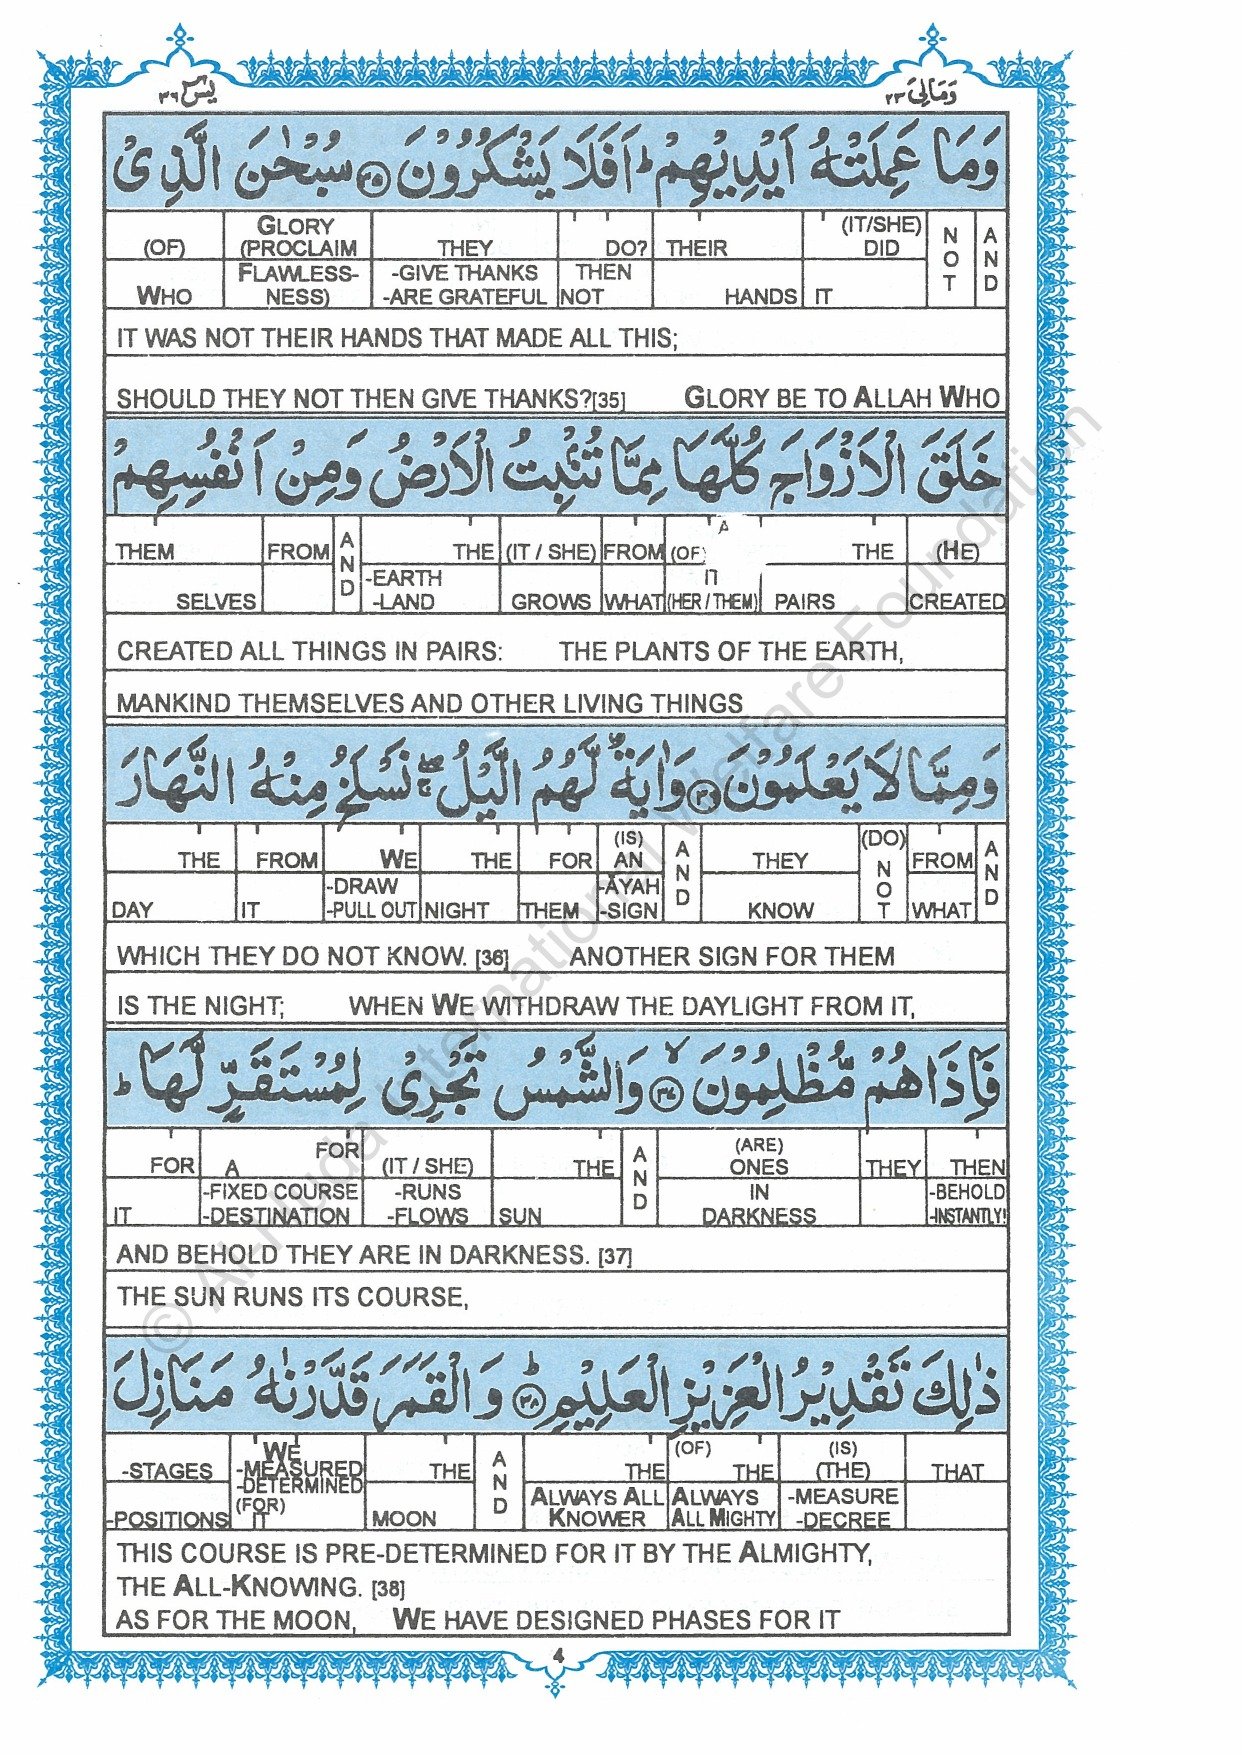 يٰسٓ ٣٦
وَمَالِیَ ٢٣
وَمَا عَمِلَتْهُ اَيْدِيْهِمْ ؕ اَفَلَا يَشْكُرُوْنَ ﴿٣٥﴾ سُبْحٰنَ الَّذِىْ
(OF) WHO | GLORY (PROCLAIM FLAWLESS-NESS) | THEY -GIVE THANKS -ARE GRATEFUL | DO? THEN NOT | THEIR HANDS | (IT/SHE) DID IT | NOT | AND
IT WAS NOT THEIR HANDS THAT MADE ALL THIS;
SHOULD THEY NOT THEN GIVE THANKS?[35] GLORY BE TO ALLAH WHO
خَلَقَ الْاَزْوَاجَ كُلَّهَا مِمَّا تُنْۢبِتُ الْاَرْضُ وَمِنْ اَنْفُسِهِمْ
THEM SELVES | FROM | AND | THE -EARTH -LAND | (IT / SHE) GROWS | FROM WHAT | (OF) IT (HER / THEM) | THE PAIRS | (HE) CREATED
CREATED ALL THINGS IN PAIRS: THE PLANTS OF THE EARTH,
MANKIND THEMSELVES AND OTHER LIVING THINGS
وَمِمَّا لَا يَعْلَمُوْنَ ﴿٣٦﴾ وَاٰيَةٌ لَّهُمُ الَّيْلُ ۖۚ نَسْلَخُ مِنْهُ النَّهَارَ
THE DAY | FROM IT | WE -DRAW -PULL OUT | THE NIGHT | FOR THEM | (IS) AN -AYAH -SIGN | AND | THEY KNOW | (DO) NOT | FROM WHAT | AND
WHICH THEY DO NOT KNOW. [36] ANOTHER SIGN FOR THEM
IS THE NIGHT; WHEN WE WITHDRAW THE DAYLIGHT FROM IT,
فَاِذَا هُمْ مُّظْلِمُوْنَ ۙ﴿٣٧﴾ وَالشَّمْسُ تَجْرِىْ لِمُسْتَقَرٍّ لَّهَا ؕ
FOR IT | FOR A -FIXED COURSE -DESTINATION | (IT / SHE) -RUNS -FLOWS | THE SUN | AND | (ARE) ONES IN DARKNESS | THEY | THEN -BEHOLD -INSTANTLY!
AND BEHOLD THEY ARE IN DARKNESS. [37]
THE SUN RUNS ITS COURSE,
ذٰلِكَ تَقْدِيْرُ الْعَزِيْزِ الْعَلِيْمِ ؕ﴿٣٨﴾ وَالْقَمَرَ قَدَّرْنٰهُ مَنَازِلَ
-STAGES -POSITIONS | WE -MEASURED -DETERMINED (FOR) IT | THE MOON | AND | THE ALWAYS ALL KNOWER | (OF) THE ALWAYS ALL MIGHTY | (IS) (THE) -MEASURE -DECREE | THAT
THIS COURSE IS PRE-DETERMINED FOR IT BY THE ALMIGHTY,
THE ALL-KNOWING. [38]
AS FOR THE MOON, WE HAVE DESIGNED PHASES FOR IT
4
© Al-Huda International Welfare Foundation